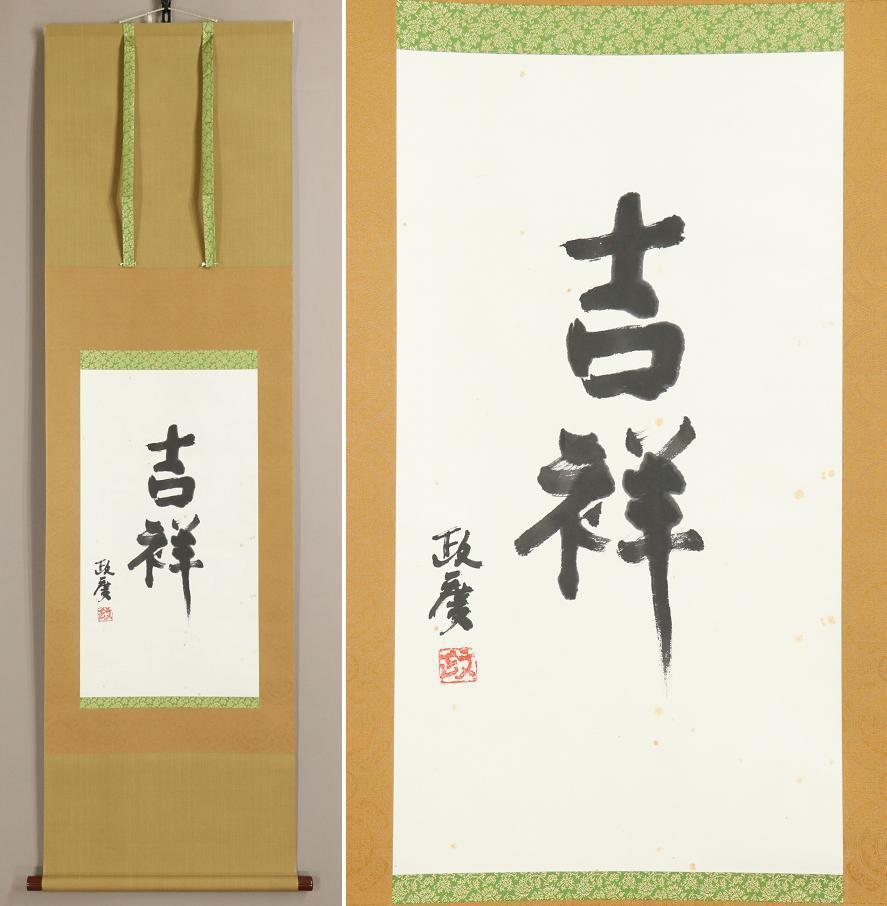 吉祥
政廣
政
吉祥
政廣
政